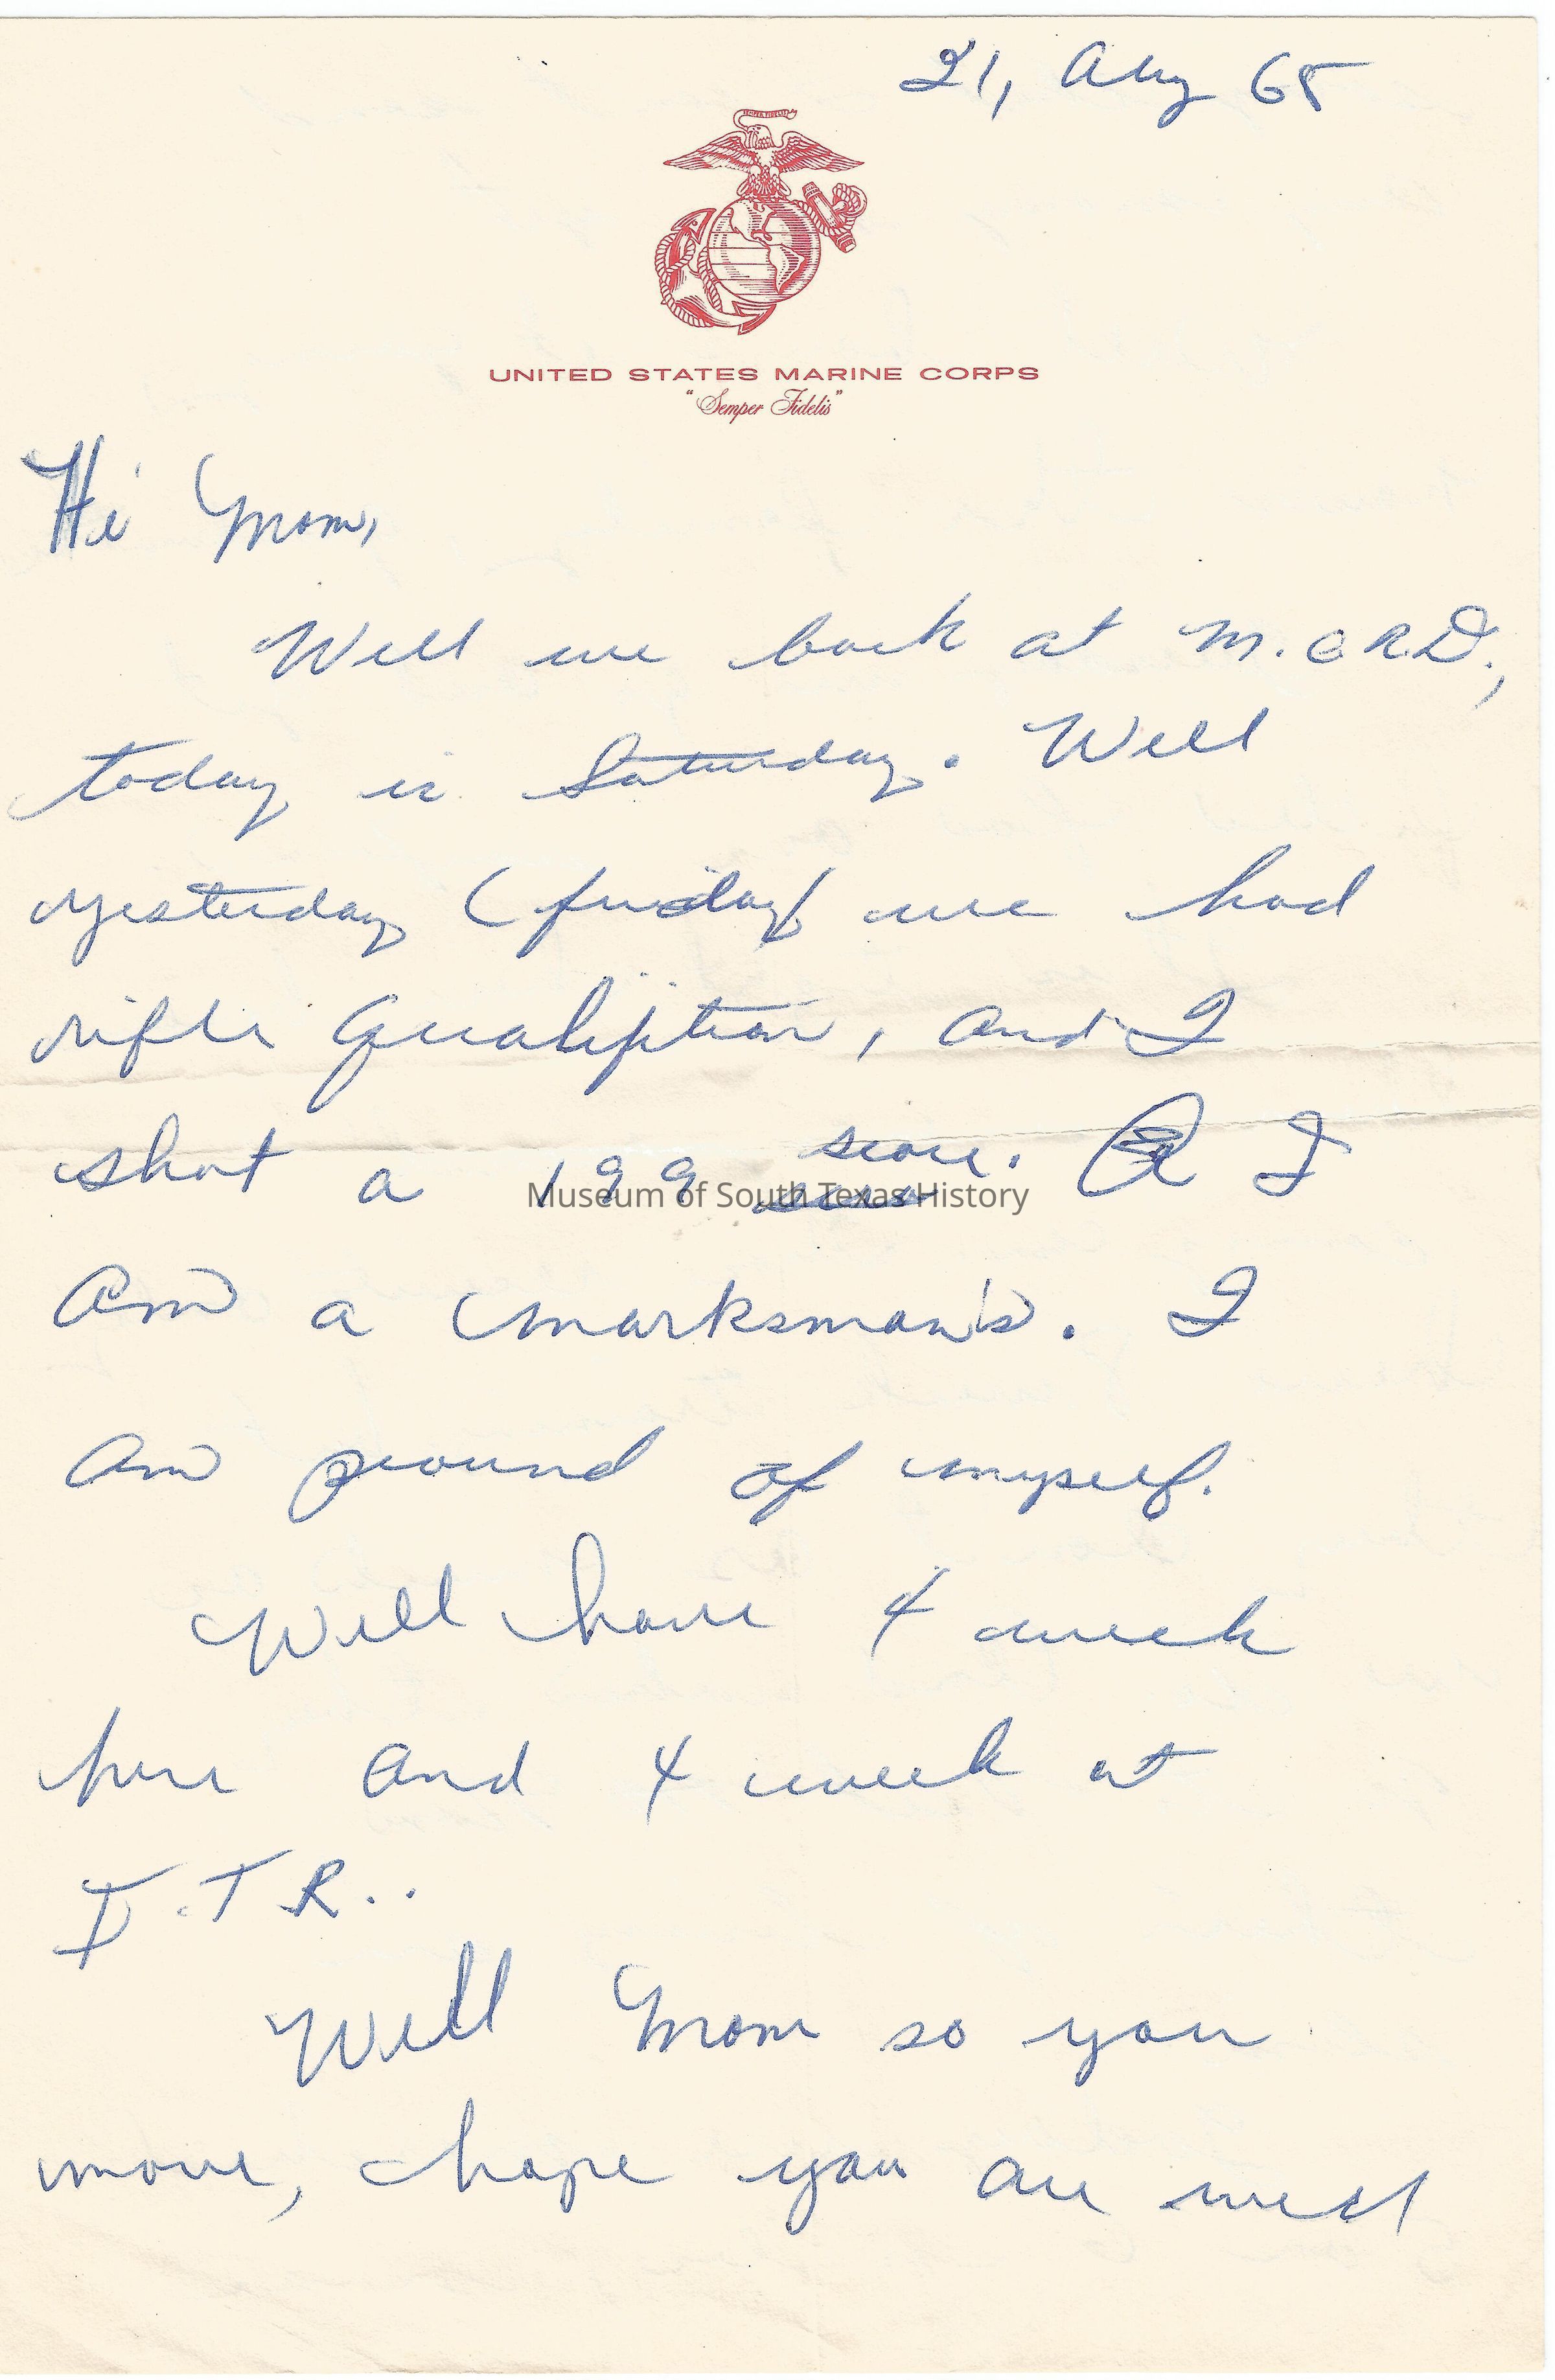 21, Aug 65
UNITED STATES MARINE CORPS
"Semper Fidelis"
Hi Mom,
Well we back at M.CRD.,
today is Saturday. Well
yesterday (friday) we had
rifle Qualifition, and I
shot a 199 score. I
Museum of South Texas History
Am a marksman's. I
Am pround of myself.
Well have 4 week
here and 4 week at
I.T.R..
Well Mom so you
move, hope you are well